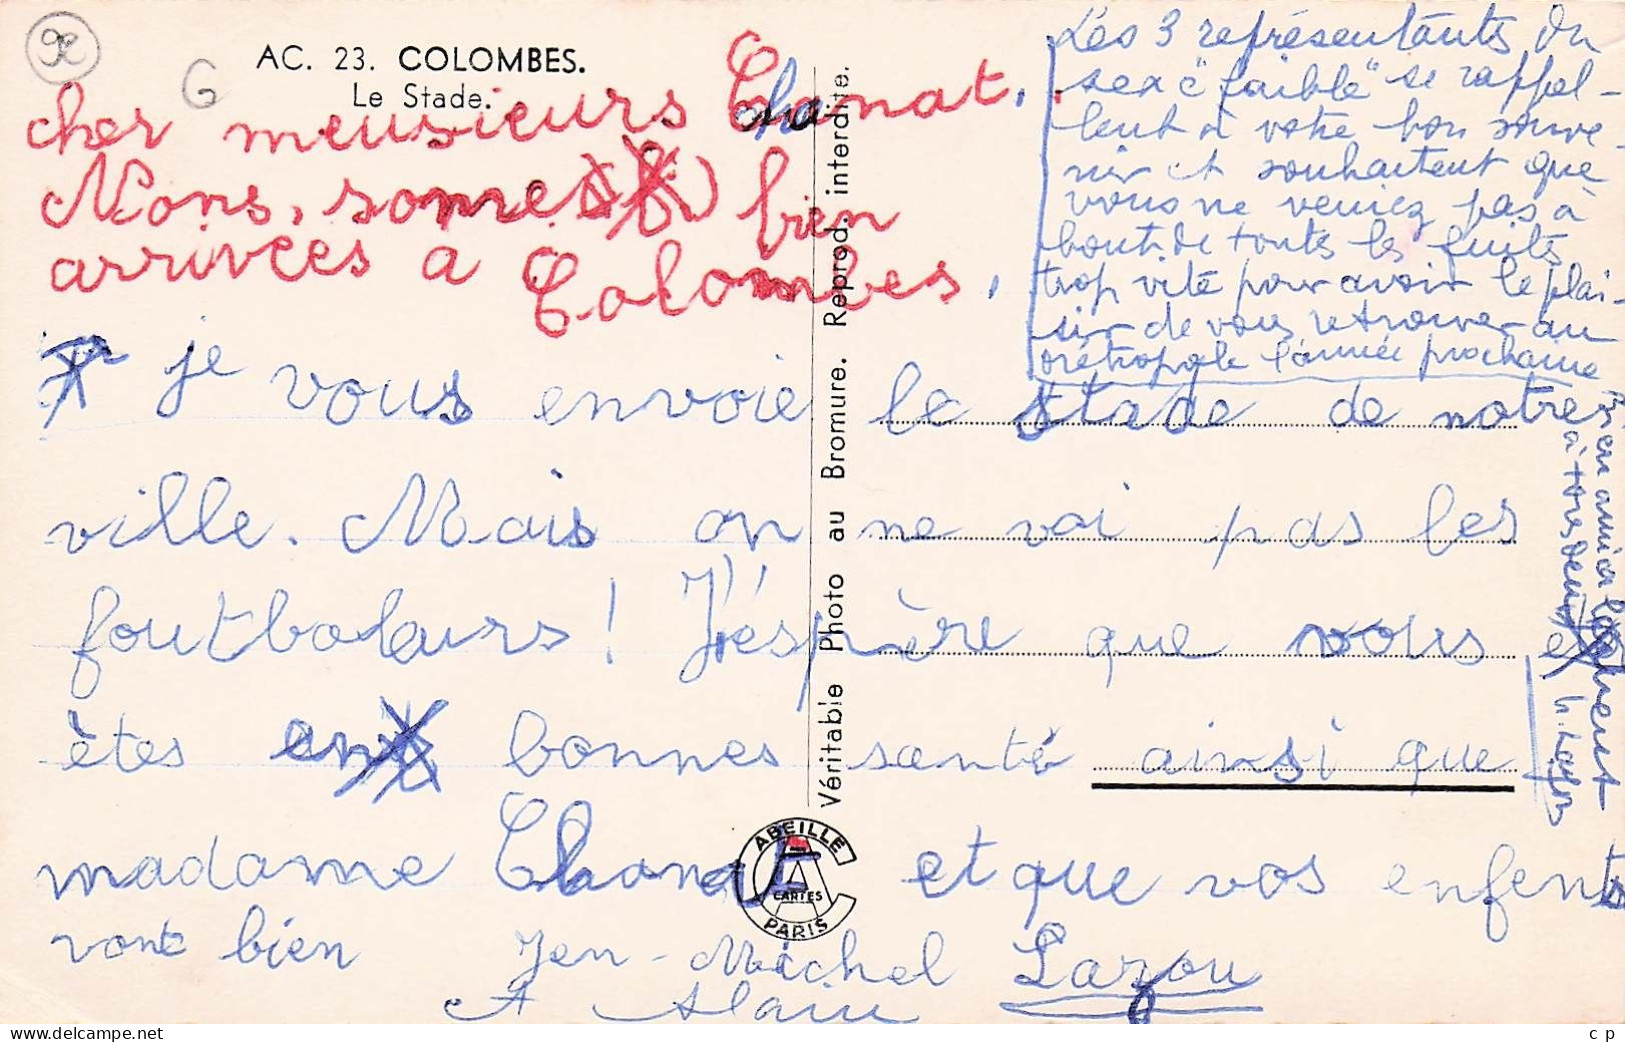 92
G
AC. 23. COLOMBES.
Le Stade.
cher meusieurs Chanat.
Nons, somes bien
arrivées a Colombes,
je vous envoie le stade de notre
ville. Mais on ne voi pas les
foutbaleurs ! J'éspère que vous
êtes en bonnes santé ainsi que
madame Chanat et que vos enfents
vont bien Jen-Michel Lazou
et Alain
Les 3 représentants du
sexe "faible" se rappel-
lent à votre bon souve-
nir et souhaitent que
vous ne veniez pas à
bout de toutes les fuites
trop vite pour avoir le plai-
sir de vous retrouver au
métropole l'année prochaine
Bien amicalement
à tous deux
Véritable Photo au Bromure. Reprod. interdite.
ABEILLE
CARTES
PARIS
c p
www.delcampe.net